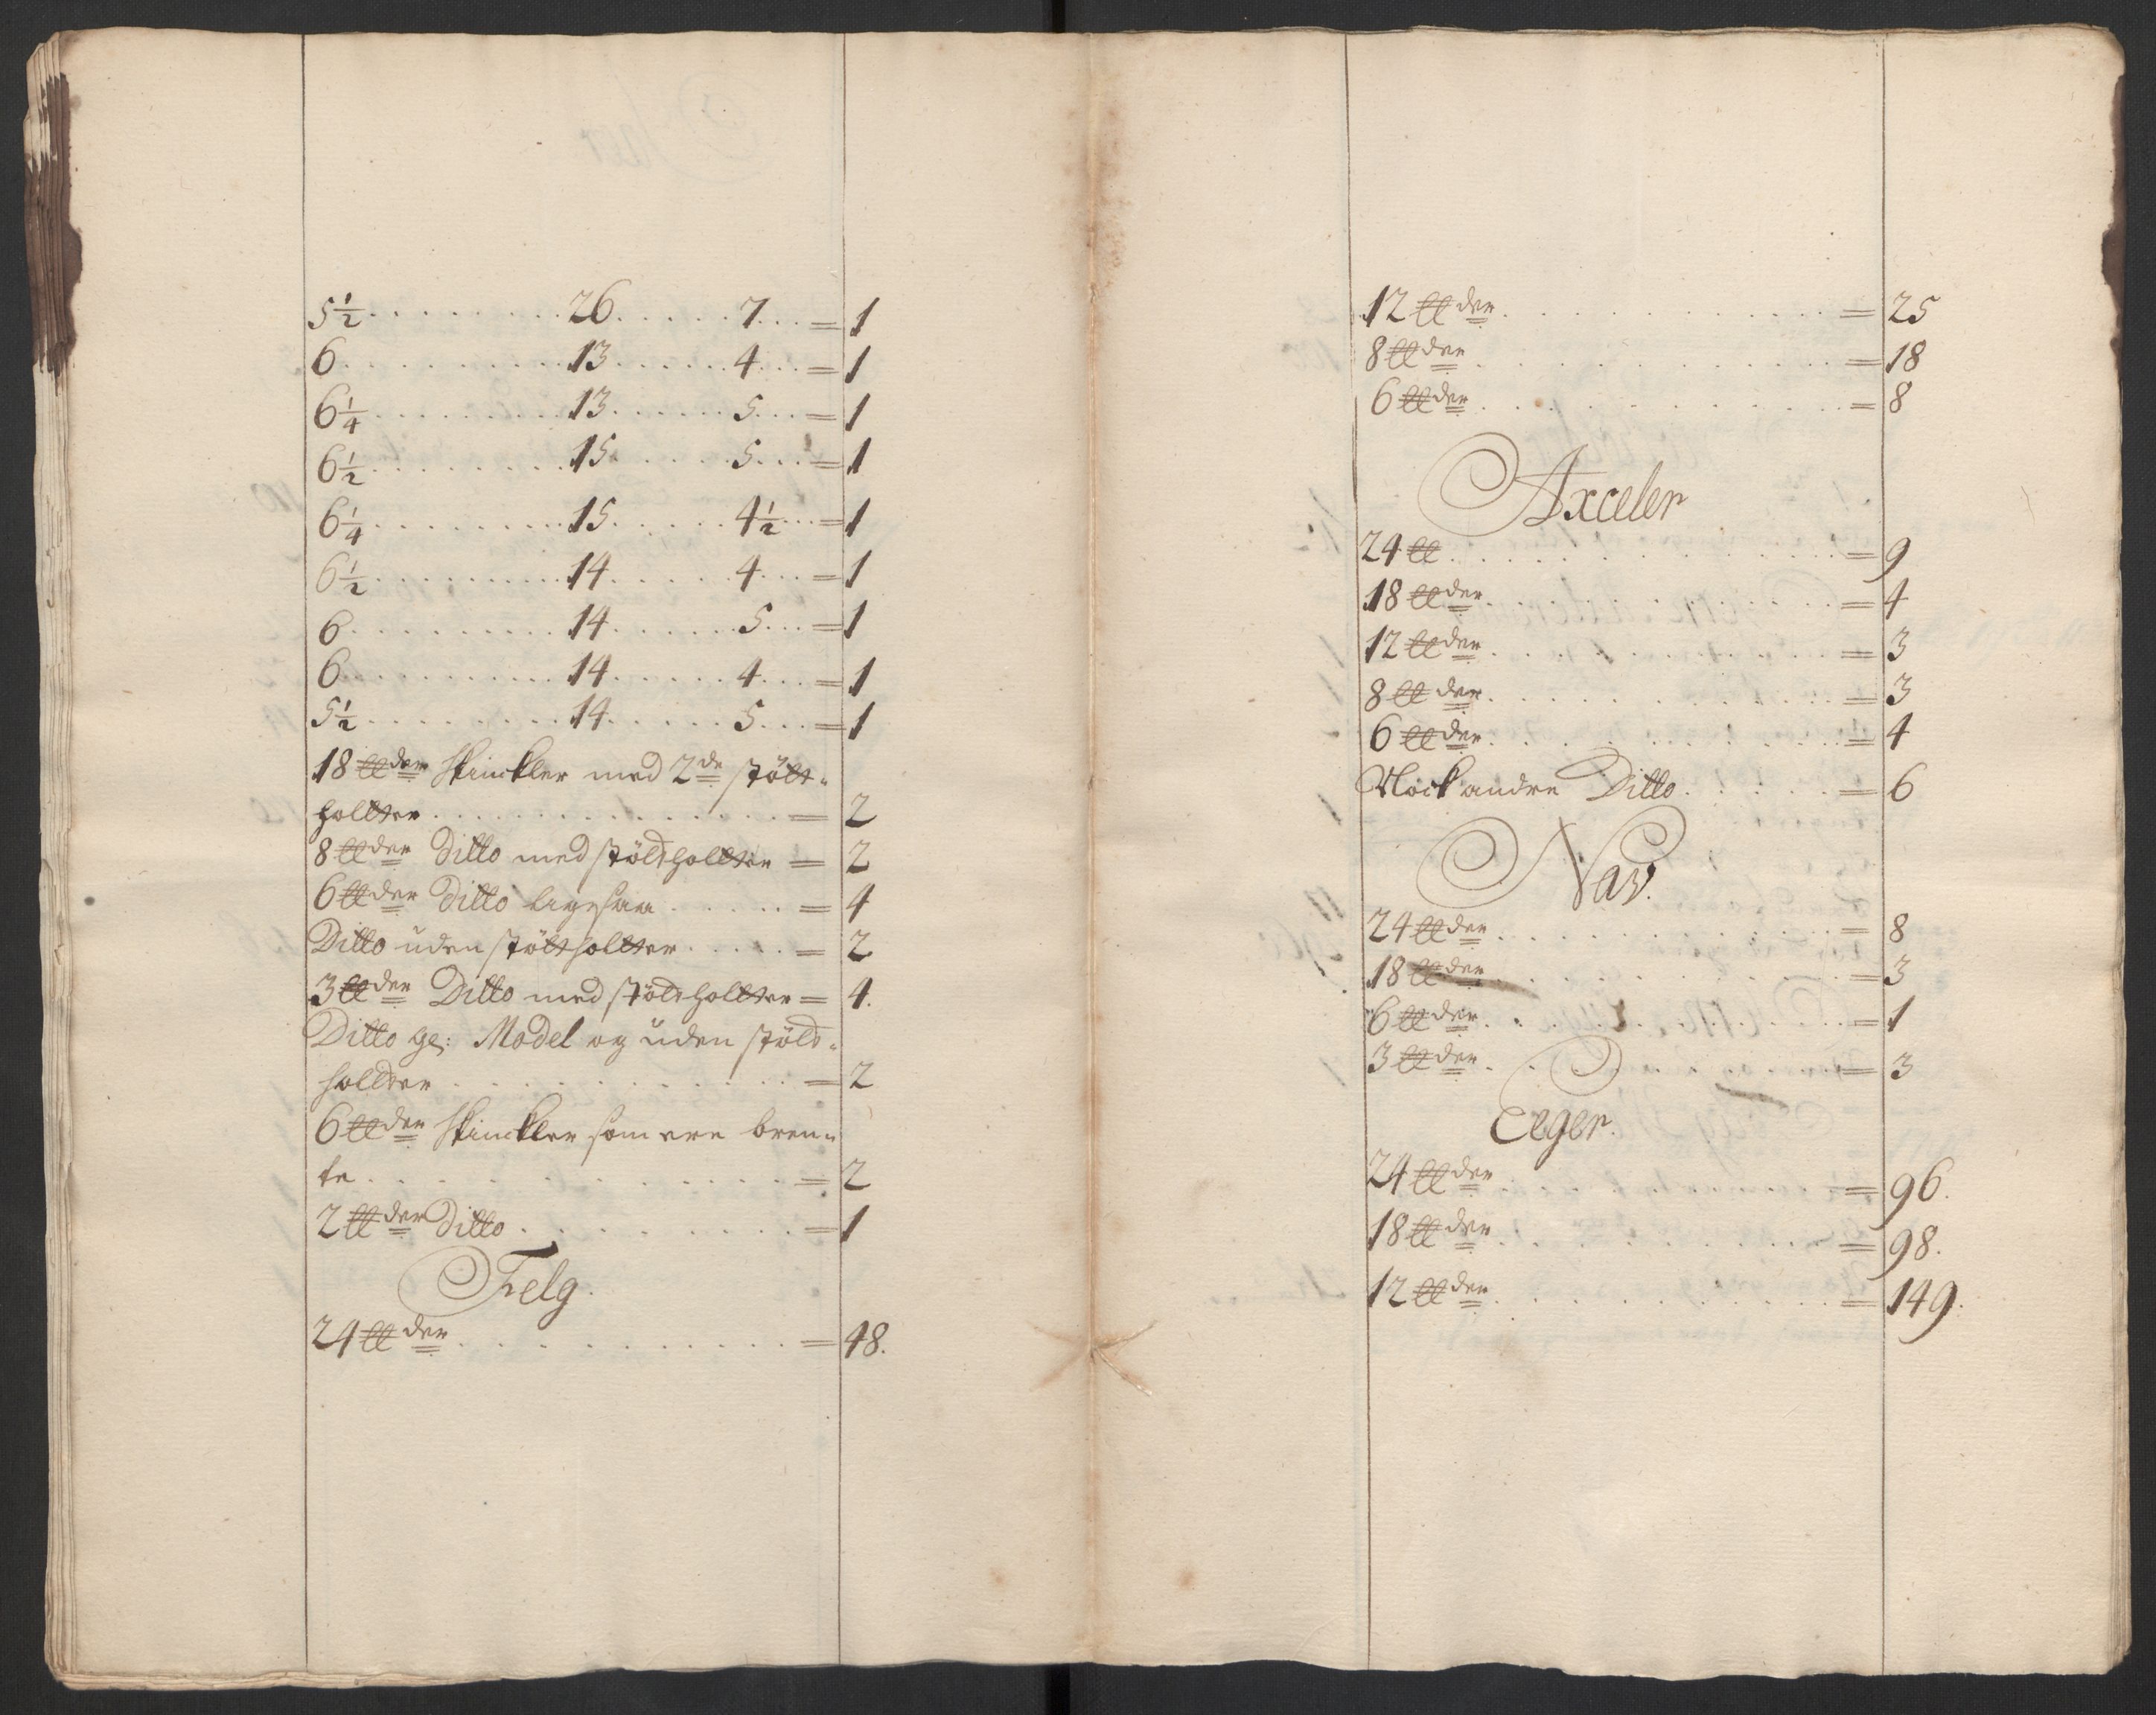 5½ . . . . . . . . 26 . . . . . 7 . . . = 1
6 . . . . . . . . . 13 . . . . . 4 . . . = 1
6¼ . . . . . . . . 13 . . . . . 5 . . . = 1
6½ . . . . . . . . 15 . . . . . 5 . . . = 1
6¼ . . . . . . . . 15 . . . . . 4½ . . . = 1
6½ . . . . . . . . 14 . . . . . 4 . . . = 1
6 . . . . . . . . . 14 . . . . . 5 . . . = 1
6 . . . . . . . . . 14 . . . . . 4 . . . = 1
5½ . . . . . . . . 14 . . . . . 5 . . . = 1
18 ℔der Skinckler med 2de stölt-
hollter . . . . . . . . . . = 2
8 ℔der Ditto med stöldhollter = 2
6 ℔der Ditto ligesaa . . . . . = 4
Ditto uden stöltholtter . . . . . = 2
3 ℔der Ditto med stöldhollter = 4.
Ditto ge: Model og uden stöld-
holdter . . . . . . . . . . = 2
6 ℔der Skinckler som ere bren-
te . . . . . . . . . . = 2
2 ℔der Ditto . . . . . . . . = 1
Felg.
24 ℔der . . . . . . . . . . = 48.
12 ℔der . . . . . . . . . . = 25
8 ℔der . . . . . . . . . . = 18
6 ℔der . . . . . . . . . . = 8
Axceler
24 ℔ . . . . . . . . . . = 9
18 ℔der . . . . . . . . . . = 4
12 ℔der . . . . . . . . . . = 3
8 ℔der . . . . . . . . . . = 3
6 ℔der . . . . . . . . . . = 4
Nock andre Ditto . . . . . = 6
Nav.
24 ℔der . . . . . . . . . . = 8
18 ℔der . . . . . . . . . . = 3
6 ℔der . . . . . . . . . . = 1
3 ℔der . . . . . . . . . . = 3
Eeger.
24 ℔der . . . . . . . . . . = 96.
18 ℔der . . . . . . . . . . = 98.
12 ℔der . . . . . . . . . . = 149.